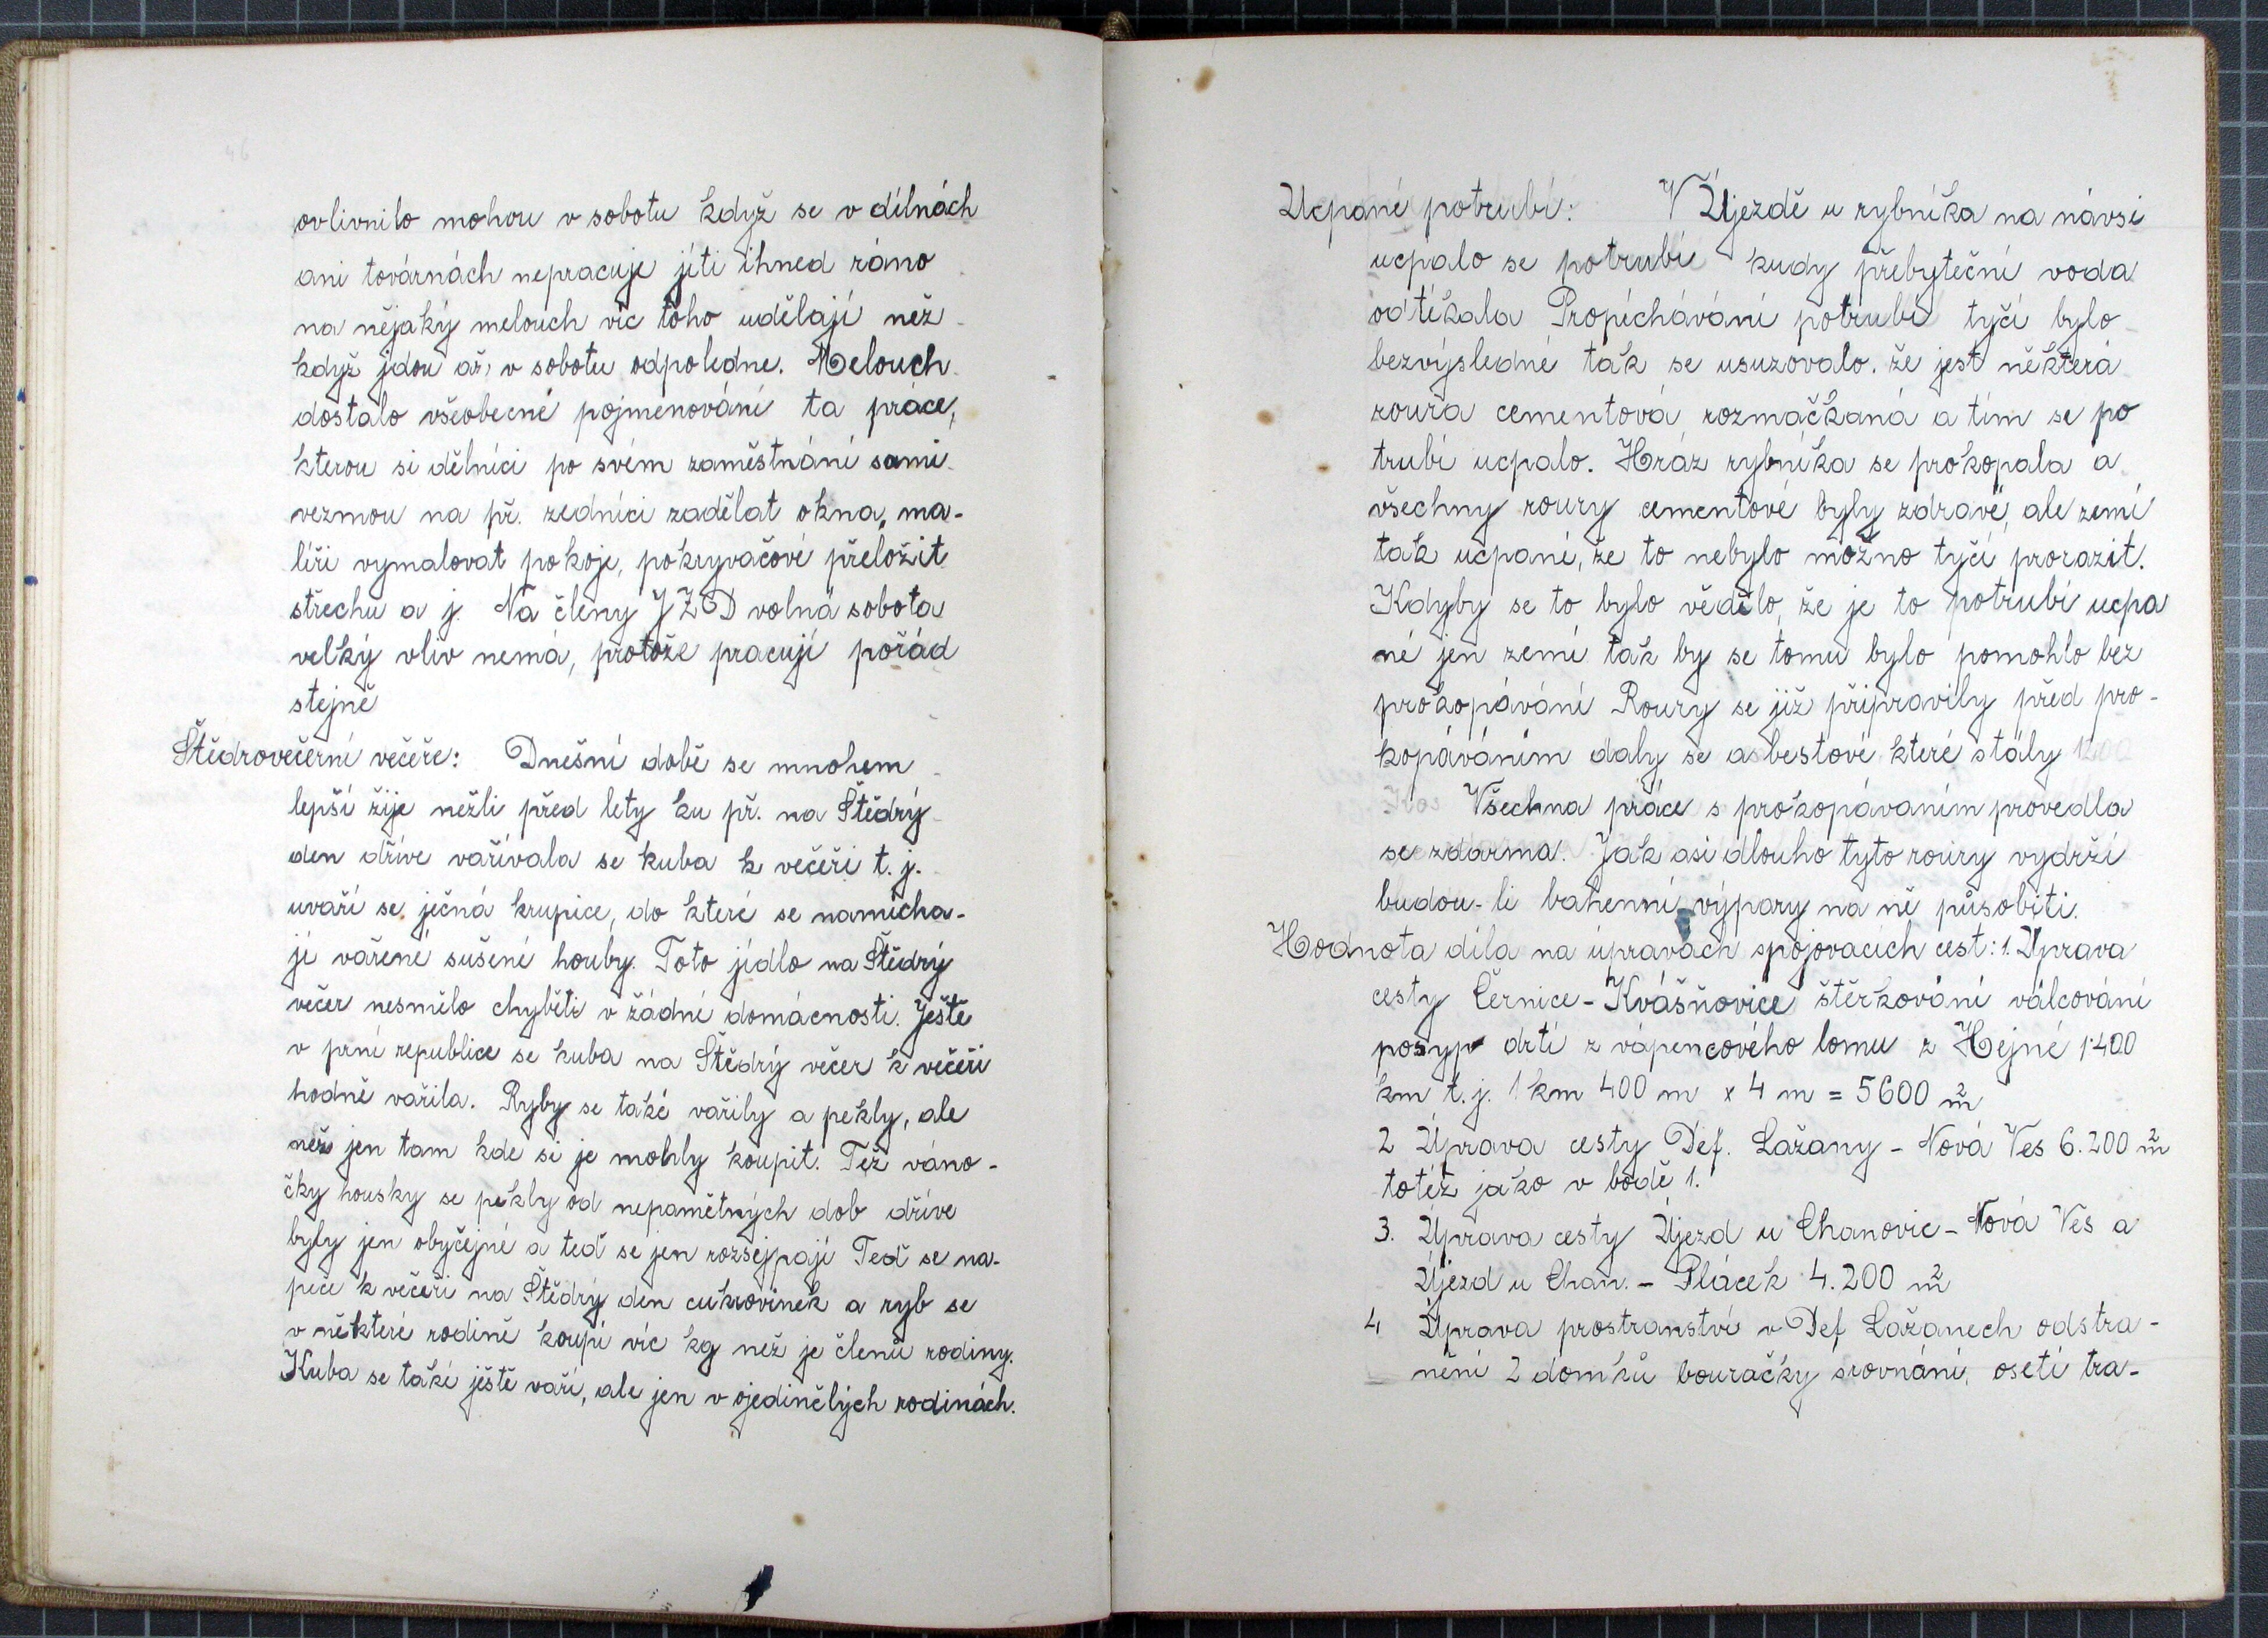 46
ovlivnilo mohou v sobotu když se v dílnách
ani továrnách nepracuje jíti ihned ráno
na nějaký melouch víc toho udělají než
když jdou až v sobotu odpoledne. Melouch
dostalo všeobecné pojmenování ta práce,
kterou si dělníci po svém zaměstnání sami
vezmou na př. zedníci zadělat okna, ma-
líři vymalovat pokoje, pokryvačové přeložit
střechu a j. Na členy JZD volná sobota
velký vliv nemá, protože pracují pořád
stejně
Štědrovečerní večeře: Dnešní době se mnohem
lepší žije nežli před lety ku př. na Štědrý
den dříve vařívala se kuba k večeři t. j.
uvaří se ječná krupice, do které se namícha-
jí vařené sušené houby. Toto jídlo na Štědrý
večer nesmělo chyběti v žádné domácnosti. Ještě
v prní republice se kuba na Štědrý večer k večeři
hodně vařila. Ryby se také vařily a pekly, ale
než jen tam kde si je mohly koupit. Též váno-
čky housky se pekly od nepamětných dob dříve
byly jen obyčejné a teď se jen rozsejpají Teď se na-
peče k večeři na Štědrý den cukrovinek a ryb se
v některé rodině koupí víc kg než je členů rodiny.
Kuba se také ještě vaří, ale jen v ojedinělých rodinách.
Ucpané potrubí: V Újezdě u rybníka na návsi
ucpalo se potrubí kudy přebyteční voda
odtékala Propíchávání potrubí tyčí bylo
bezvýsledné tak se usuzovalo. že jest některá
roura cementová rozmáčkaná a tím se po
trubí ucpalo. Hráz rybníka se prokopala a
všechny roury cementové byly zdravé, ale zemí
tak ucpané, že to nebylo možno tyčí prorazit.
Kdyby se to bylo vědělo, že je to potrubí ucpa
né jen zemí tak by se tomu bylo pomohlo bez
prokopávání Roury se již připravily před pro-
kopáváním daly se asbestové které stály 1200
Kčs Všechna práce s prokopávaním provedla
se zdarma. Jak asi dlouho tyto roury vydrží
budou-li bahenní výpary na ně působiti.
Hodnota díla na úpravách spojovacích cest: 1. Úprava
cesty Černice - Kvášňovice štěrkování válcování
posyp drtí z vápencového lomu z Hejné 1·400
km t. j. 1 km 400 m x 4 m = 5600 m²
2 Úprava cesty Def. Lažany - Nová Ves 6.200 m²
totéž jako v bodě 1.
3. Úprava cesty Újezd u Chanovic - Nová Ves a
Újezd u Chan. - Plácek 4.200 m²
4 Úprava prostranství v Def Lažanech odstra-
nění 2 domků bouračky srovnání, osetí tra-